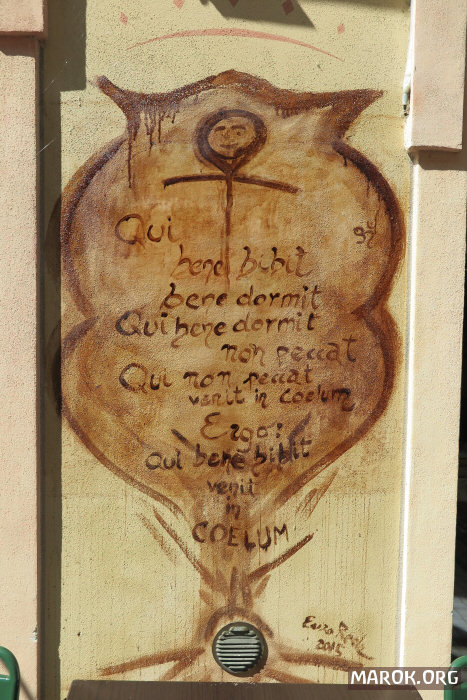 Qui
bene bibit
bene dormit
Qui bene dormit
non peccat
Qui non peccat
venit in Coelum
Ergo:
Qui bene bibit
venit
in
COELUM
2015
MAROK.ORG